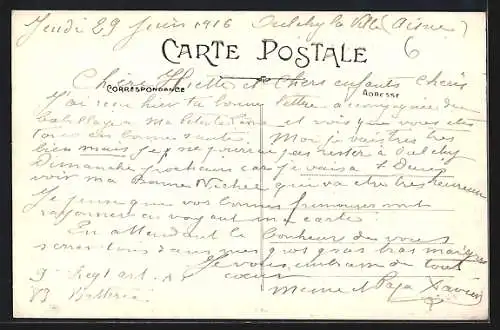 Jeudi 29 Juin 1916 Oulchy la Ville (Aisne)
6
CARTE POSTALE
CORRESPONDANCE
ADRESSE
Chère et Chers enfants Chéris
J'ai reçu hier ta bonne lettre accompagnée du
babillage ma et vois que vous êtes
en bonne santé. Moi je vais très très
bien mais je ne pas rester à Oulchy
Dimanche prochain car je vais à
voir ma bonne qui va être heureuse
Je pense que vos bonnes frimousses vont
rayonner en voyant ma carte.
En attendant le bonheur de vous
serrer tous dans mes gros gros bras
Je vous embrasse de tout
cœur
9e Regt art. à
83 Batterie
Papa